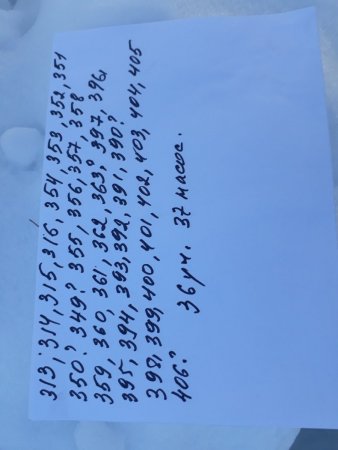 313, 314, 315, 316, 354, 353, 352, 351
350? 349? 355, 356, 357, 358
359, 360, 361, 362, 363? 397, 396,
395, 394, 393, 392, 391, 390?
398, 399, 400, 401, 402, 403, 404, 405
406? 36 уч. 37 масос.